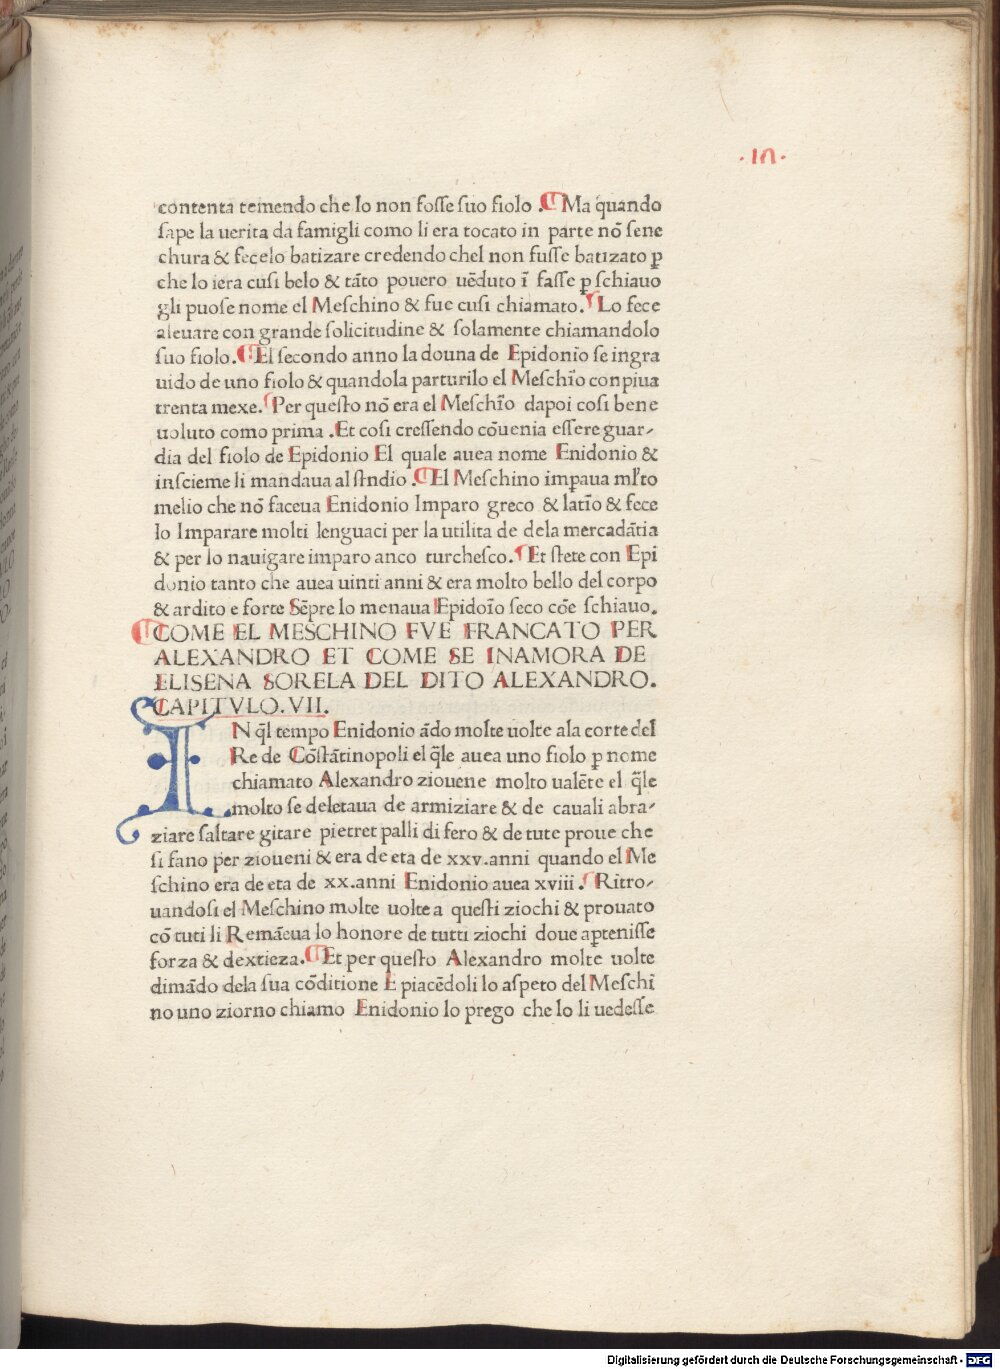 ·ın·
contenta temendo che lo non fosse suo fiolo .¶ Ma quando
sape la uerita da famigli como li era tocato in parte nō sene
chura & fecelo batizare credendo chel non fusse batizato ꝑ
che lo iera cusi belo & tāto pouero uēduto ī fasse ꝑ schiauo
gli puose nome el Meschino & fue cusi chiamato.¶ Lo fece
aleuare con grande solicitudine & solamente chiamandolo
suo fiolo.¶ El secondo anno la douna de Epidonio se ingra
uido de uno fiolo & quandola parturilo el Meschīo con piua
trenta mexe.¶ Per questo nō era el Meschīo dapoi cosi bene
uoluto como prima .Et cosi cressendo cōuenia essere guar-
dia del fiolo de Epidonio El quale auea nome Enidonio &
inscieme li mandaua al stndio .¶ El Meschino imꝑaua ml̄to
melio che nō faceua Enidonio Imparo greco & latīo & fece
lo Imparare molti lenguaci per la utilita de dela mercadātia
& per lo nauigare imparo anco turchesco.¶ Et stete con Epi
donio tanto che auea uinti anni & era molto bello del corpo
& ardito e forte Sēpre lo menaua Epidoīo seco cōe schiauo.
¶ COME EL MESCHINO FVE FRANCATO PER
ALEXANDRO ET COME SE INAMORA DE
ELISENA SORELA DEL DITO ALEXANDRO.
CAPITVLO.VII.
IN q̄l tempo Enidonio ādo molte uolte ala corte del
Re de Cōstātinopoli el q̄le auea uno fiolo ꝑ nome
chiamato Alexandro ziouene molto ualēte el q̄le
molto se deletaua de armiziare & de cauali abra-
ziare saltare gitare pietret palli di fero & de tute proue che
si fano per zioueni & era de eta de xxv.anni quando el Me
schino era de eta de xx.anni Enidonio auea xviii .¶ Ritro-
uandosi el Meschino molte uolte a questi ziochi & prouato
cō tuti li Remāeua lo honore de tutti ziochi doue aꝑtenisse
forza & dextieza.¶ Et per questo Alexandro molte uolte
dimādo dela sua cōditione E piacēdoli lo aspeto del Meschī
no uno ziorno chiamo Enidonio lo prego che lo li uedesse
Digitalisierung gefördert durch die Deutsche Forschungsgemeinschaft - DFG